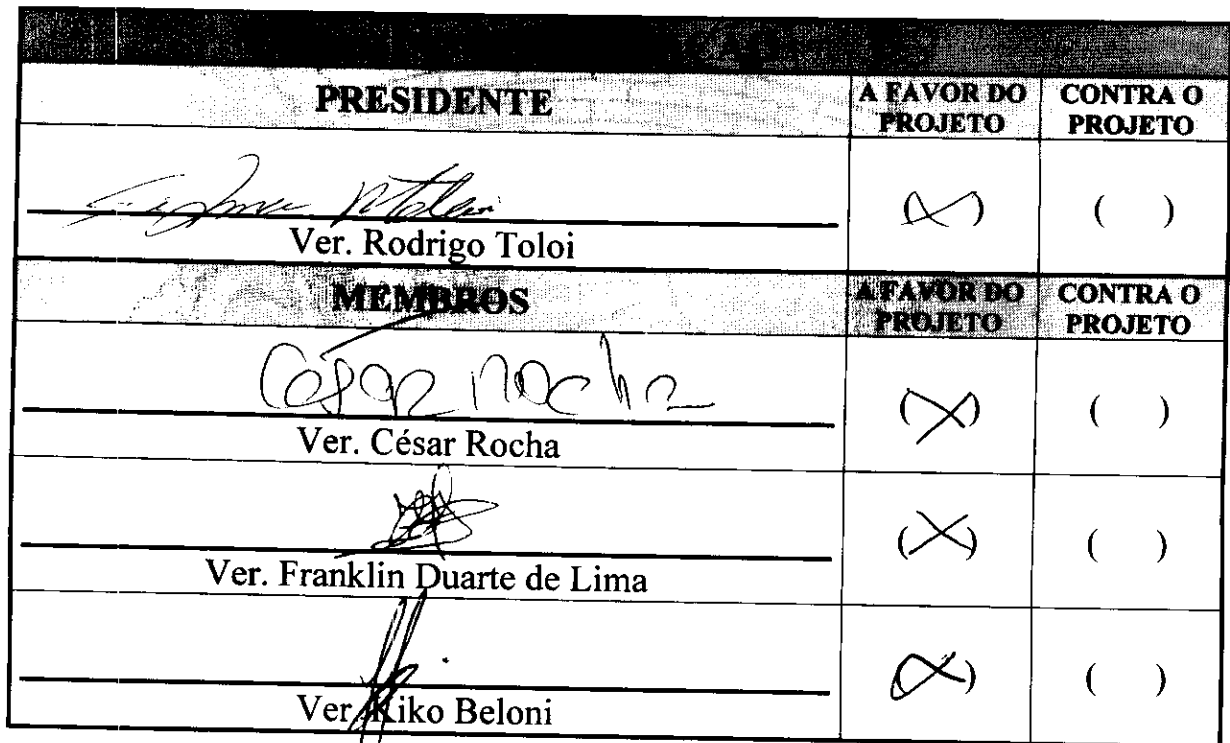 PRESIDENTE
A FAVOR DO PROJETO
CONTRA O PROJETO
(X)
( )
Ver. Rodrigo Toloi
MEMBROS
A FAVOR DO PROJETO
CONTRA O PROJETO
César Rocha
(X)
( )
Ver. César Rocha
(X)
( )
Ver. Franklin Duarte de Lima
(X)
( )
Ver. Kiko Beloni